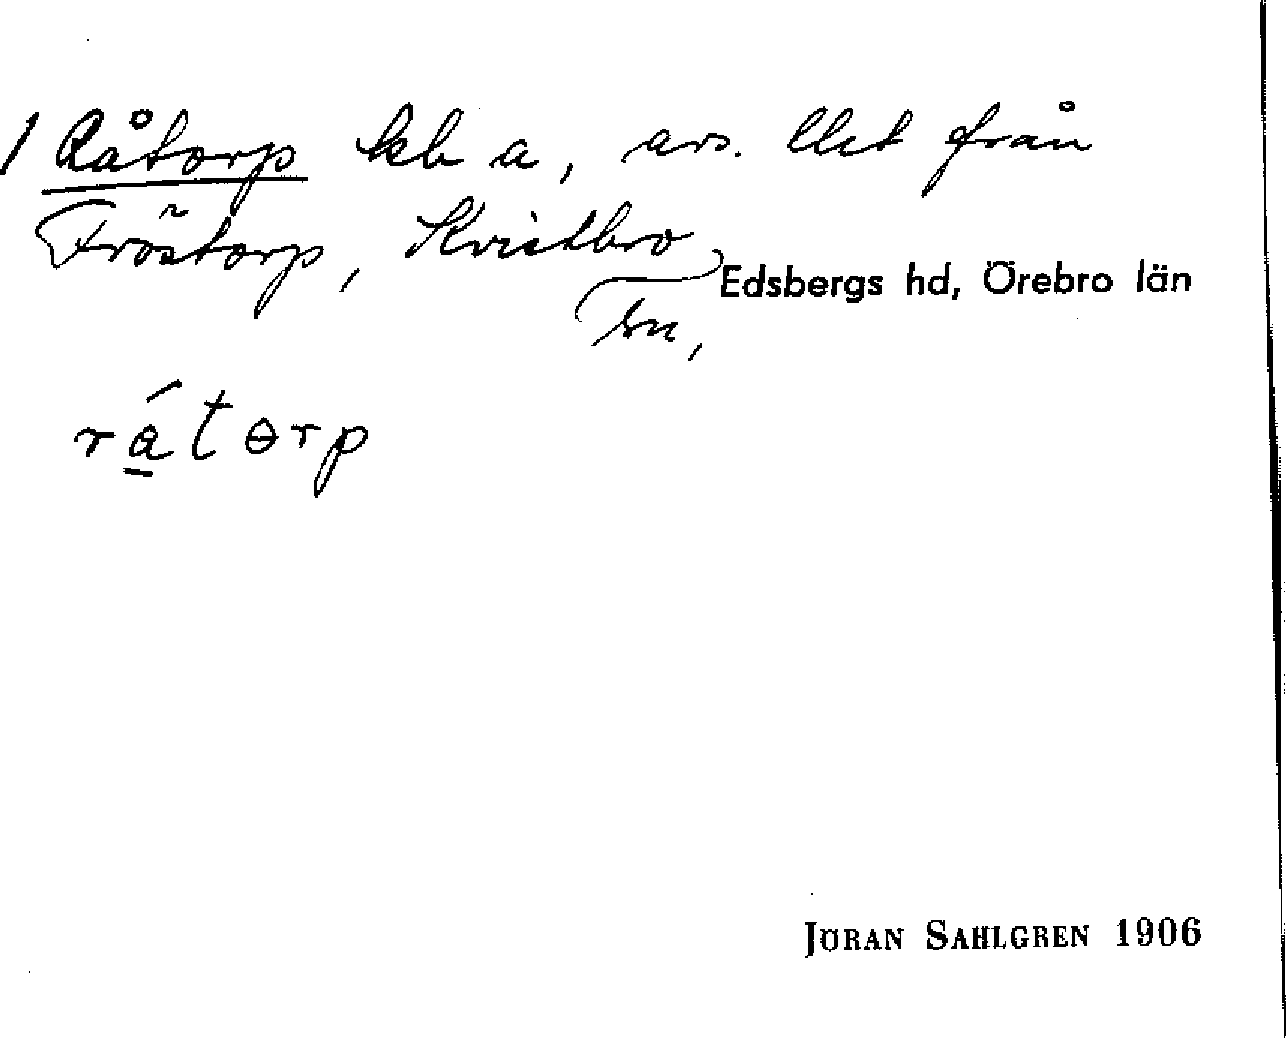 1 Råtorp kb a, avs. 1/4 från
Fröstorp, Kvistbro
sn,
Edsbergs hd, Örebro län
rá̱tɵrp
JÖRAN SAHLGREN 1906